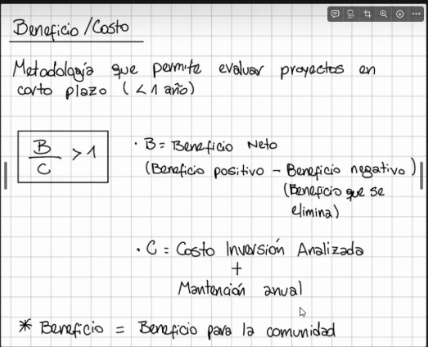 Beneficio/Costo
Metodología que permite evaluar proyectos en
corto plazo (<1 año)
B/C > 1
· B = Beneficio Neto
(Beneficio positivo - Beneficio negativo)
(Beneficio que se
elimina)
· C = Costo Inversión Analizada
+
Mantención anual
* Beneficio = Beneficio para la comunidad